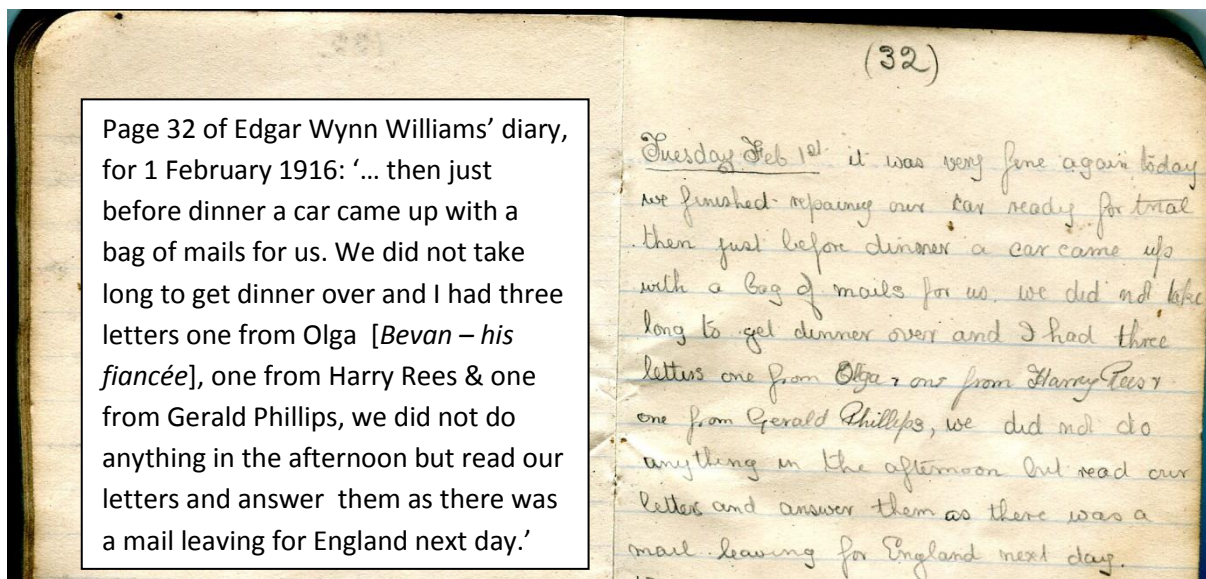 Page 32 of Edgar Wynn Williams’ diary,
for 1 February 1916: ‘… then just
before dinner a car came up with a
bag of mails for us. We did not take
long to get dinner over and I had three
letters one from Olga [Bevan – his
fiancée], one from Harry Rees & one
from Gerald Phillips, we did not do
anything in the afternoon but read our
letters and answer them as there was
a mail leaving for England next day.’
(32)
Tuesday Feb 1st it was very fine again today
we finished repairing our car ready for trial
then just before dinner a car came up
with a bag of mails for us. we did not take
long to get dinner over and I had three
letters one from Olga, one from Harry Rees &
one from Gerald Phillips, we did not do
anything in the afternoon but read our
letters and answer them as there was a
mail leaving for England next day.